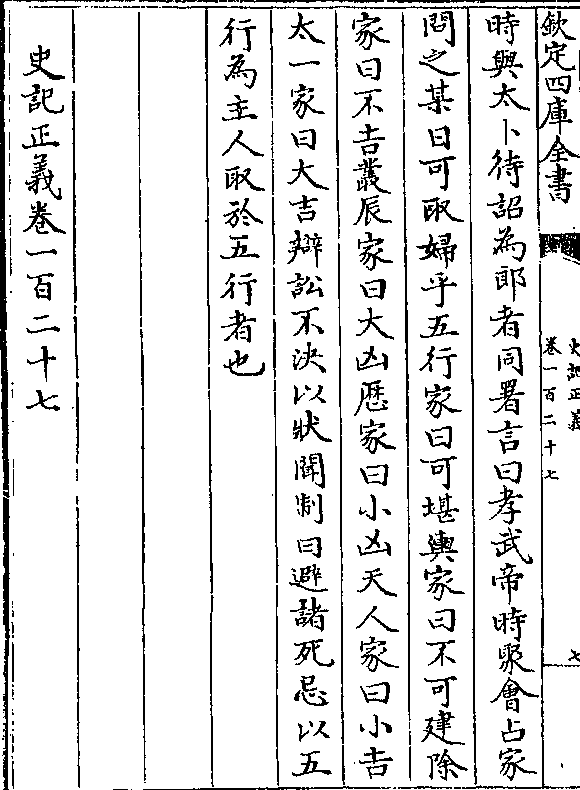 欽定四庫全書
史記正義
卷一百二十七
七
時與太卜待詔為郎者同署言曰孝武帝時聚會占家
問之某日可取婦乎五行家曰可堪輿家曰不可建除
家曰不吉叢辰家曰大凶厯家曰小凶天人家曰小吉
太一家曰大吉辯訟不決以狀聞制曰避諸死忌以五
行為主人取於五行者也
史記正義卷一百二十七